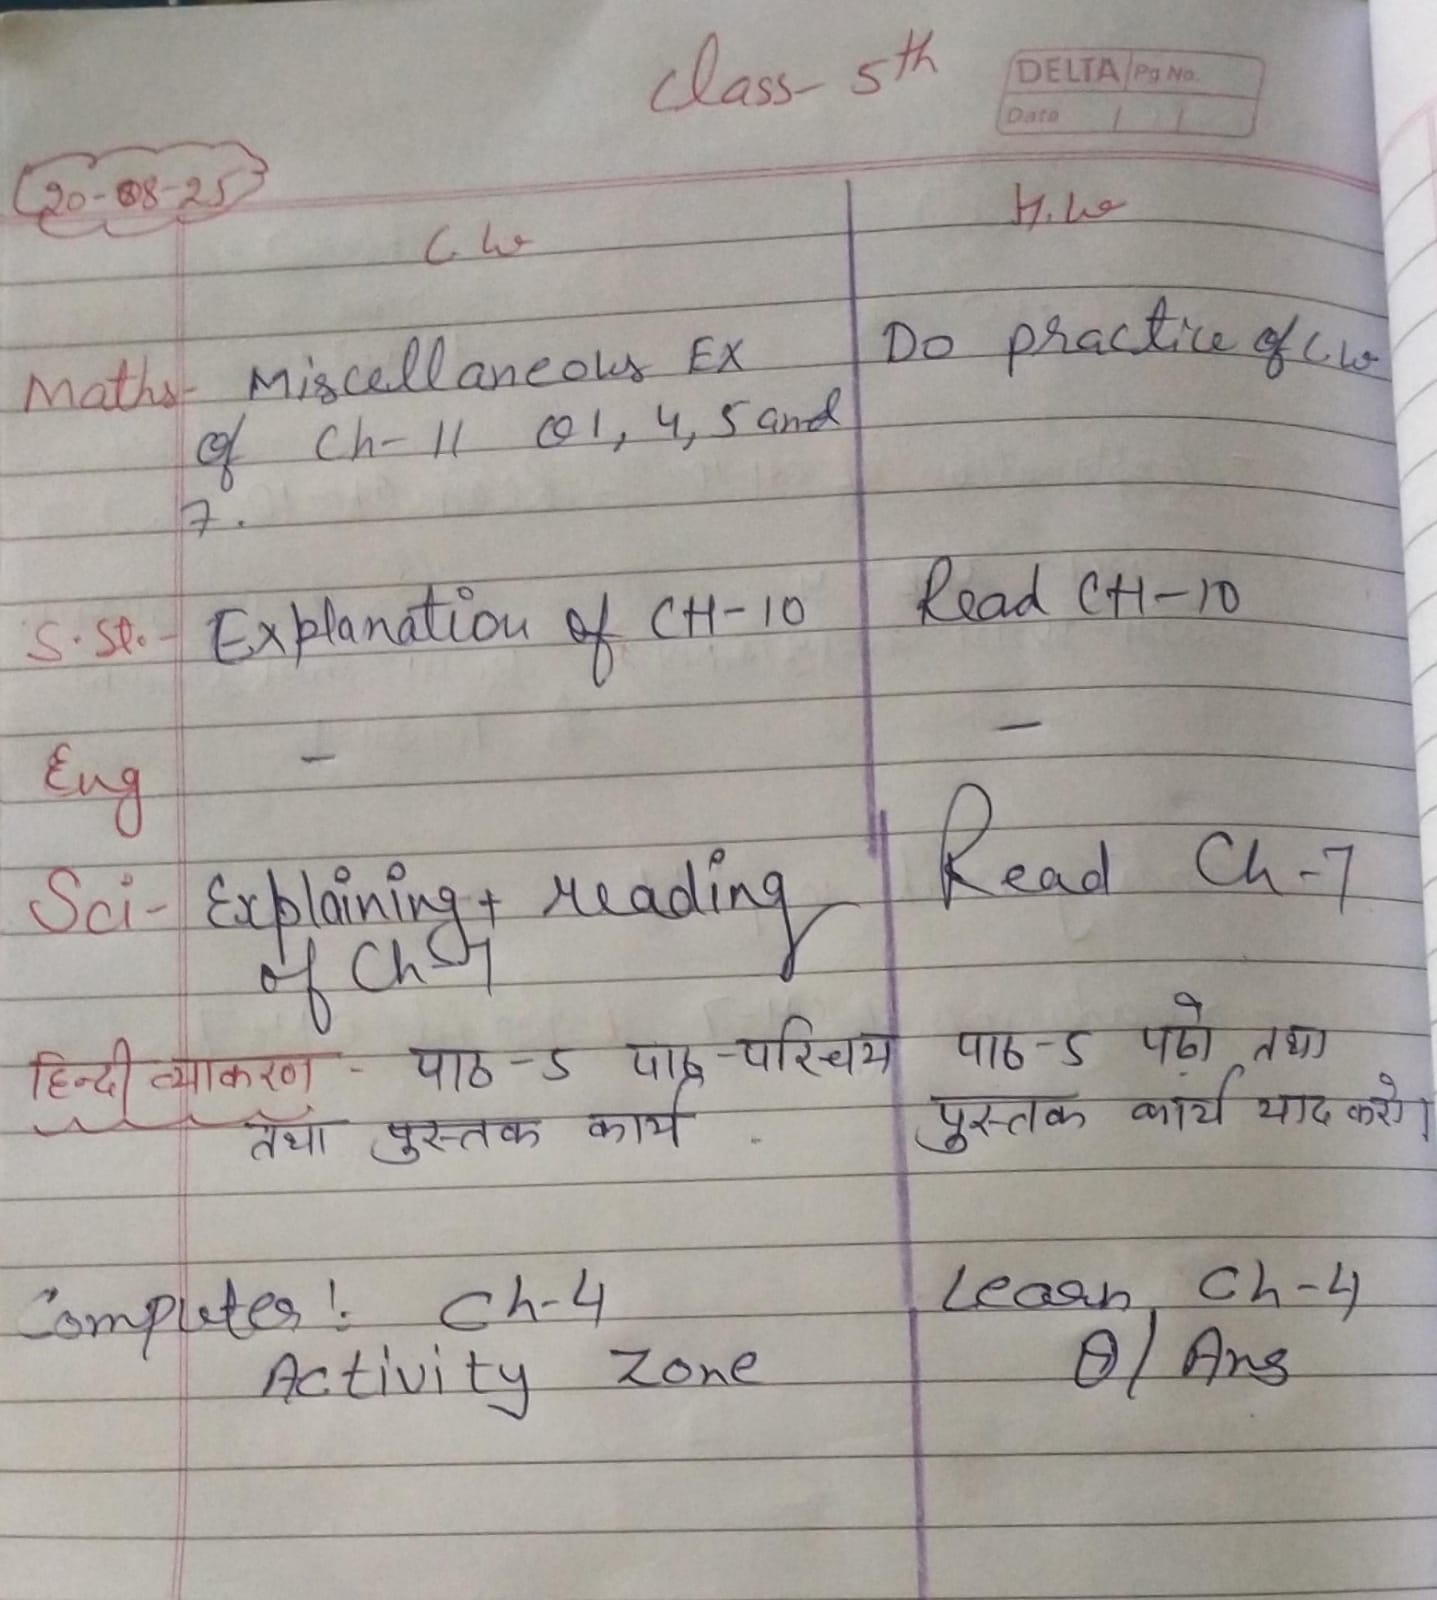 Class- 5th
DELTA Pg No.
Date / /
20-08-25
C.W
H.W
Maths- Miscellaneous EX
Do practice of C.W
of Ch-11 Q1, 4, 5 and
7.
S.St.- Explanation of CH-10
Read CH-10
Eng - -
Sci- Explaining + reading
Read Ch-7
of Ch-7
हिन्दी व्याकरण - पाठ-5 पाठ-परिचय
पाठ-5 पढ़ो तथा
तथा पुस्तक कार्य .
पुस्तक कार्य याद करो।
Computer: Ch-4
Learn Ch-4
Activity Zone
Q/ Ans